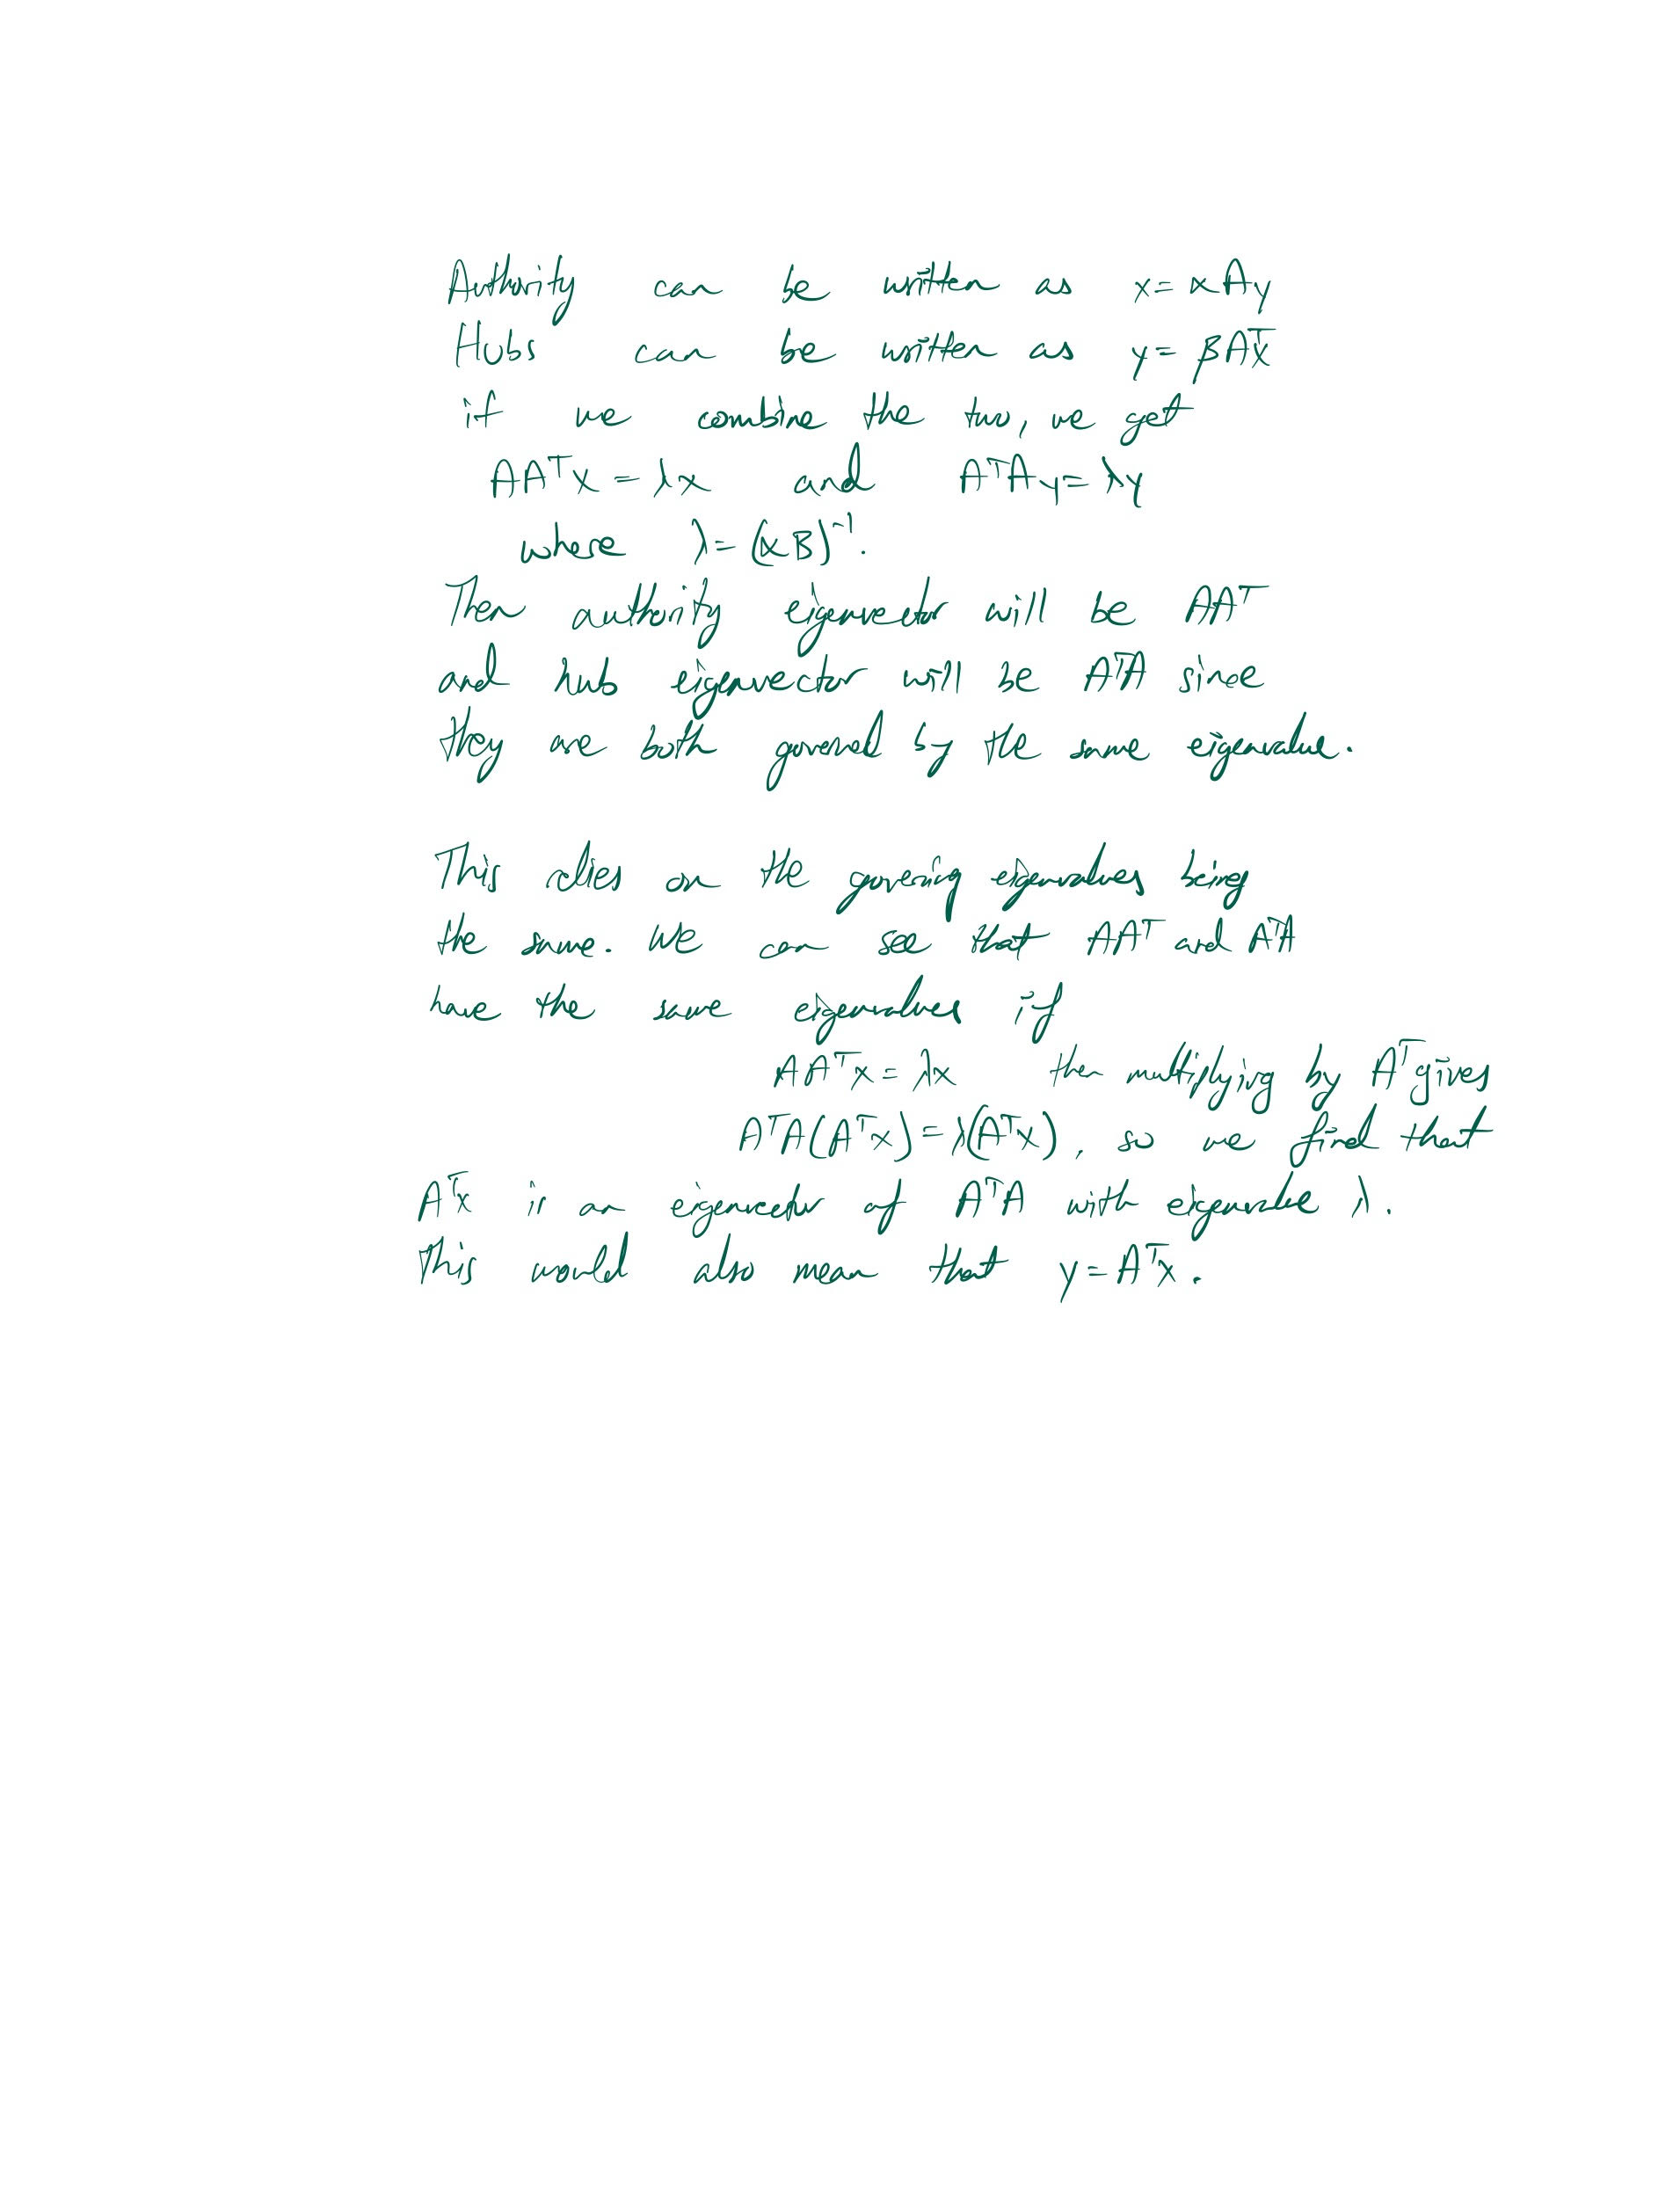 Authority can be written as x = αAy
Hubs can be written as y = βAᵀx
if we combine the two, we get
AAᵀx = λx and AᵀAy = λy
where λ = (αB)⁻¹.
Then authority eigenvector will be AAᵀ
and hub eigenvector will be AᵀA since
they are both governed by the same eigenvalue.
This relies on the governing eigenvalues being
the same. We can see that AAᵀ and AᵀA
have the same eigenvalues if
AAᵀx = λx then multiplying by Aᵀ gives
AᵀA(Aᵀx) = λ(Aᵀx), so we find that
Aᵀx is an eigenvector of AᵀA with eigenvalue λ.
This would also mean that y = Aᵀx.